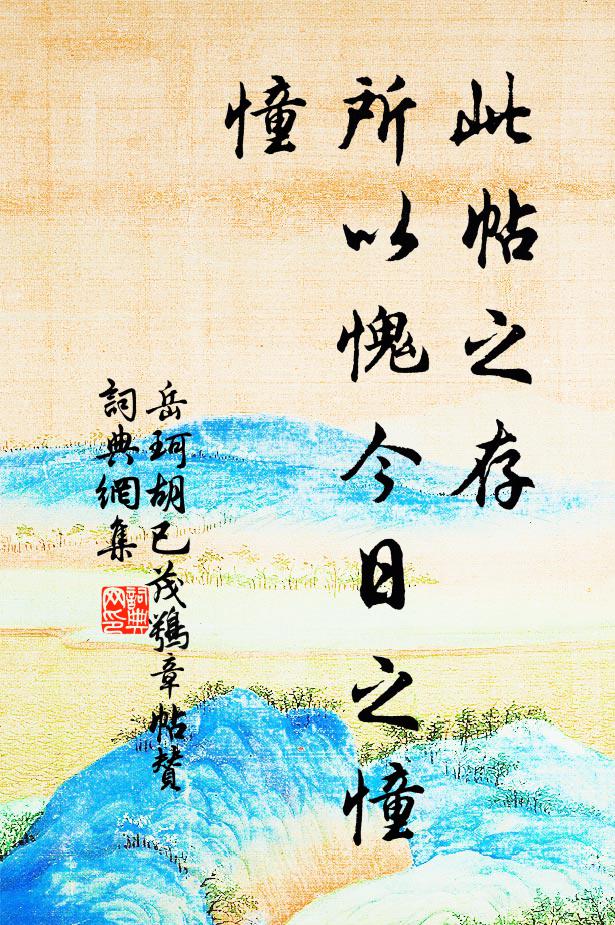 此帖之存
所以愧今日之憧
憧
岳珂胡已茂鷄章帖贊
詞典網集
詞典網印